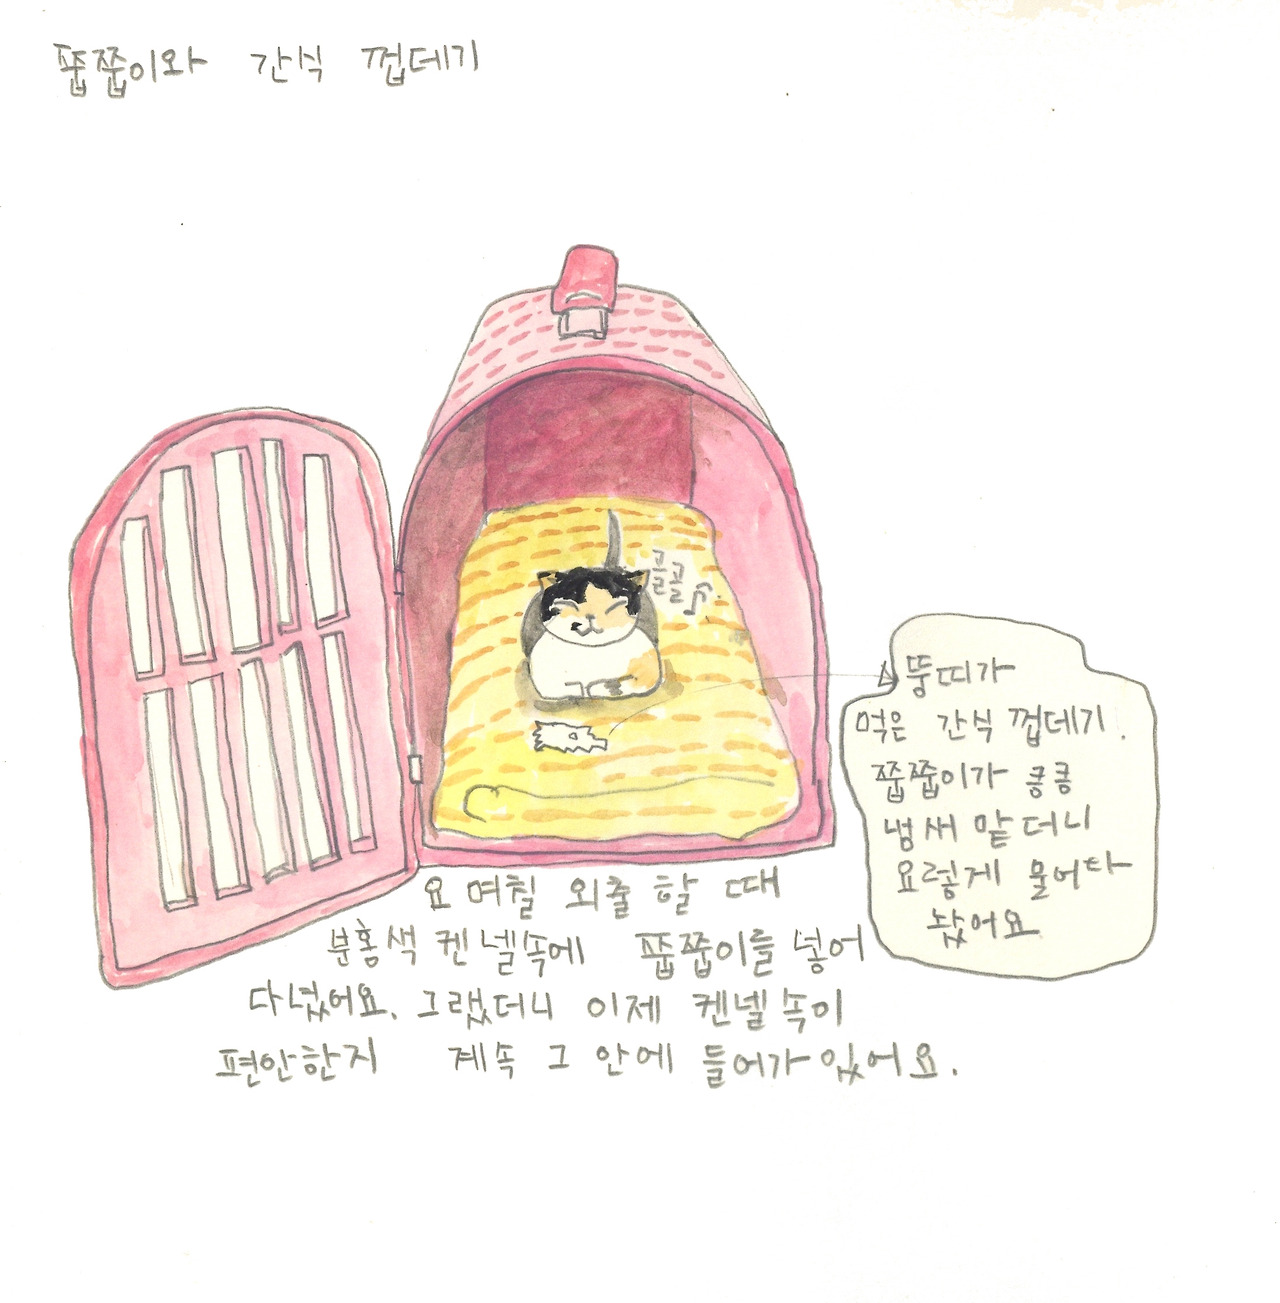 쭙쭙이와 간식 껍데기
골골
뚱띠가
먹은 간식 껍데기.
쭙쭙이가 킁킁
냄새 맡더니
요렇게 물어다
놨어요
요 며칠 외출 할 때
분홍색 켄넬속에 쭙쭙이를 넣어
다녔어요. 그랬더니 이제 켄넬 속이
편안한지 계속 그 안에 들어가 있어요.